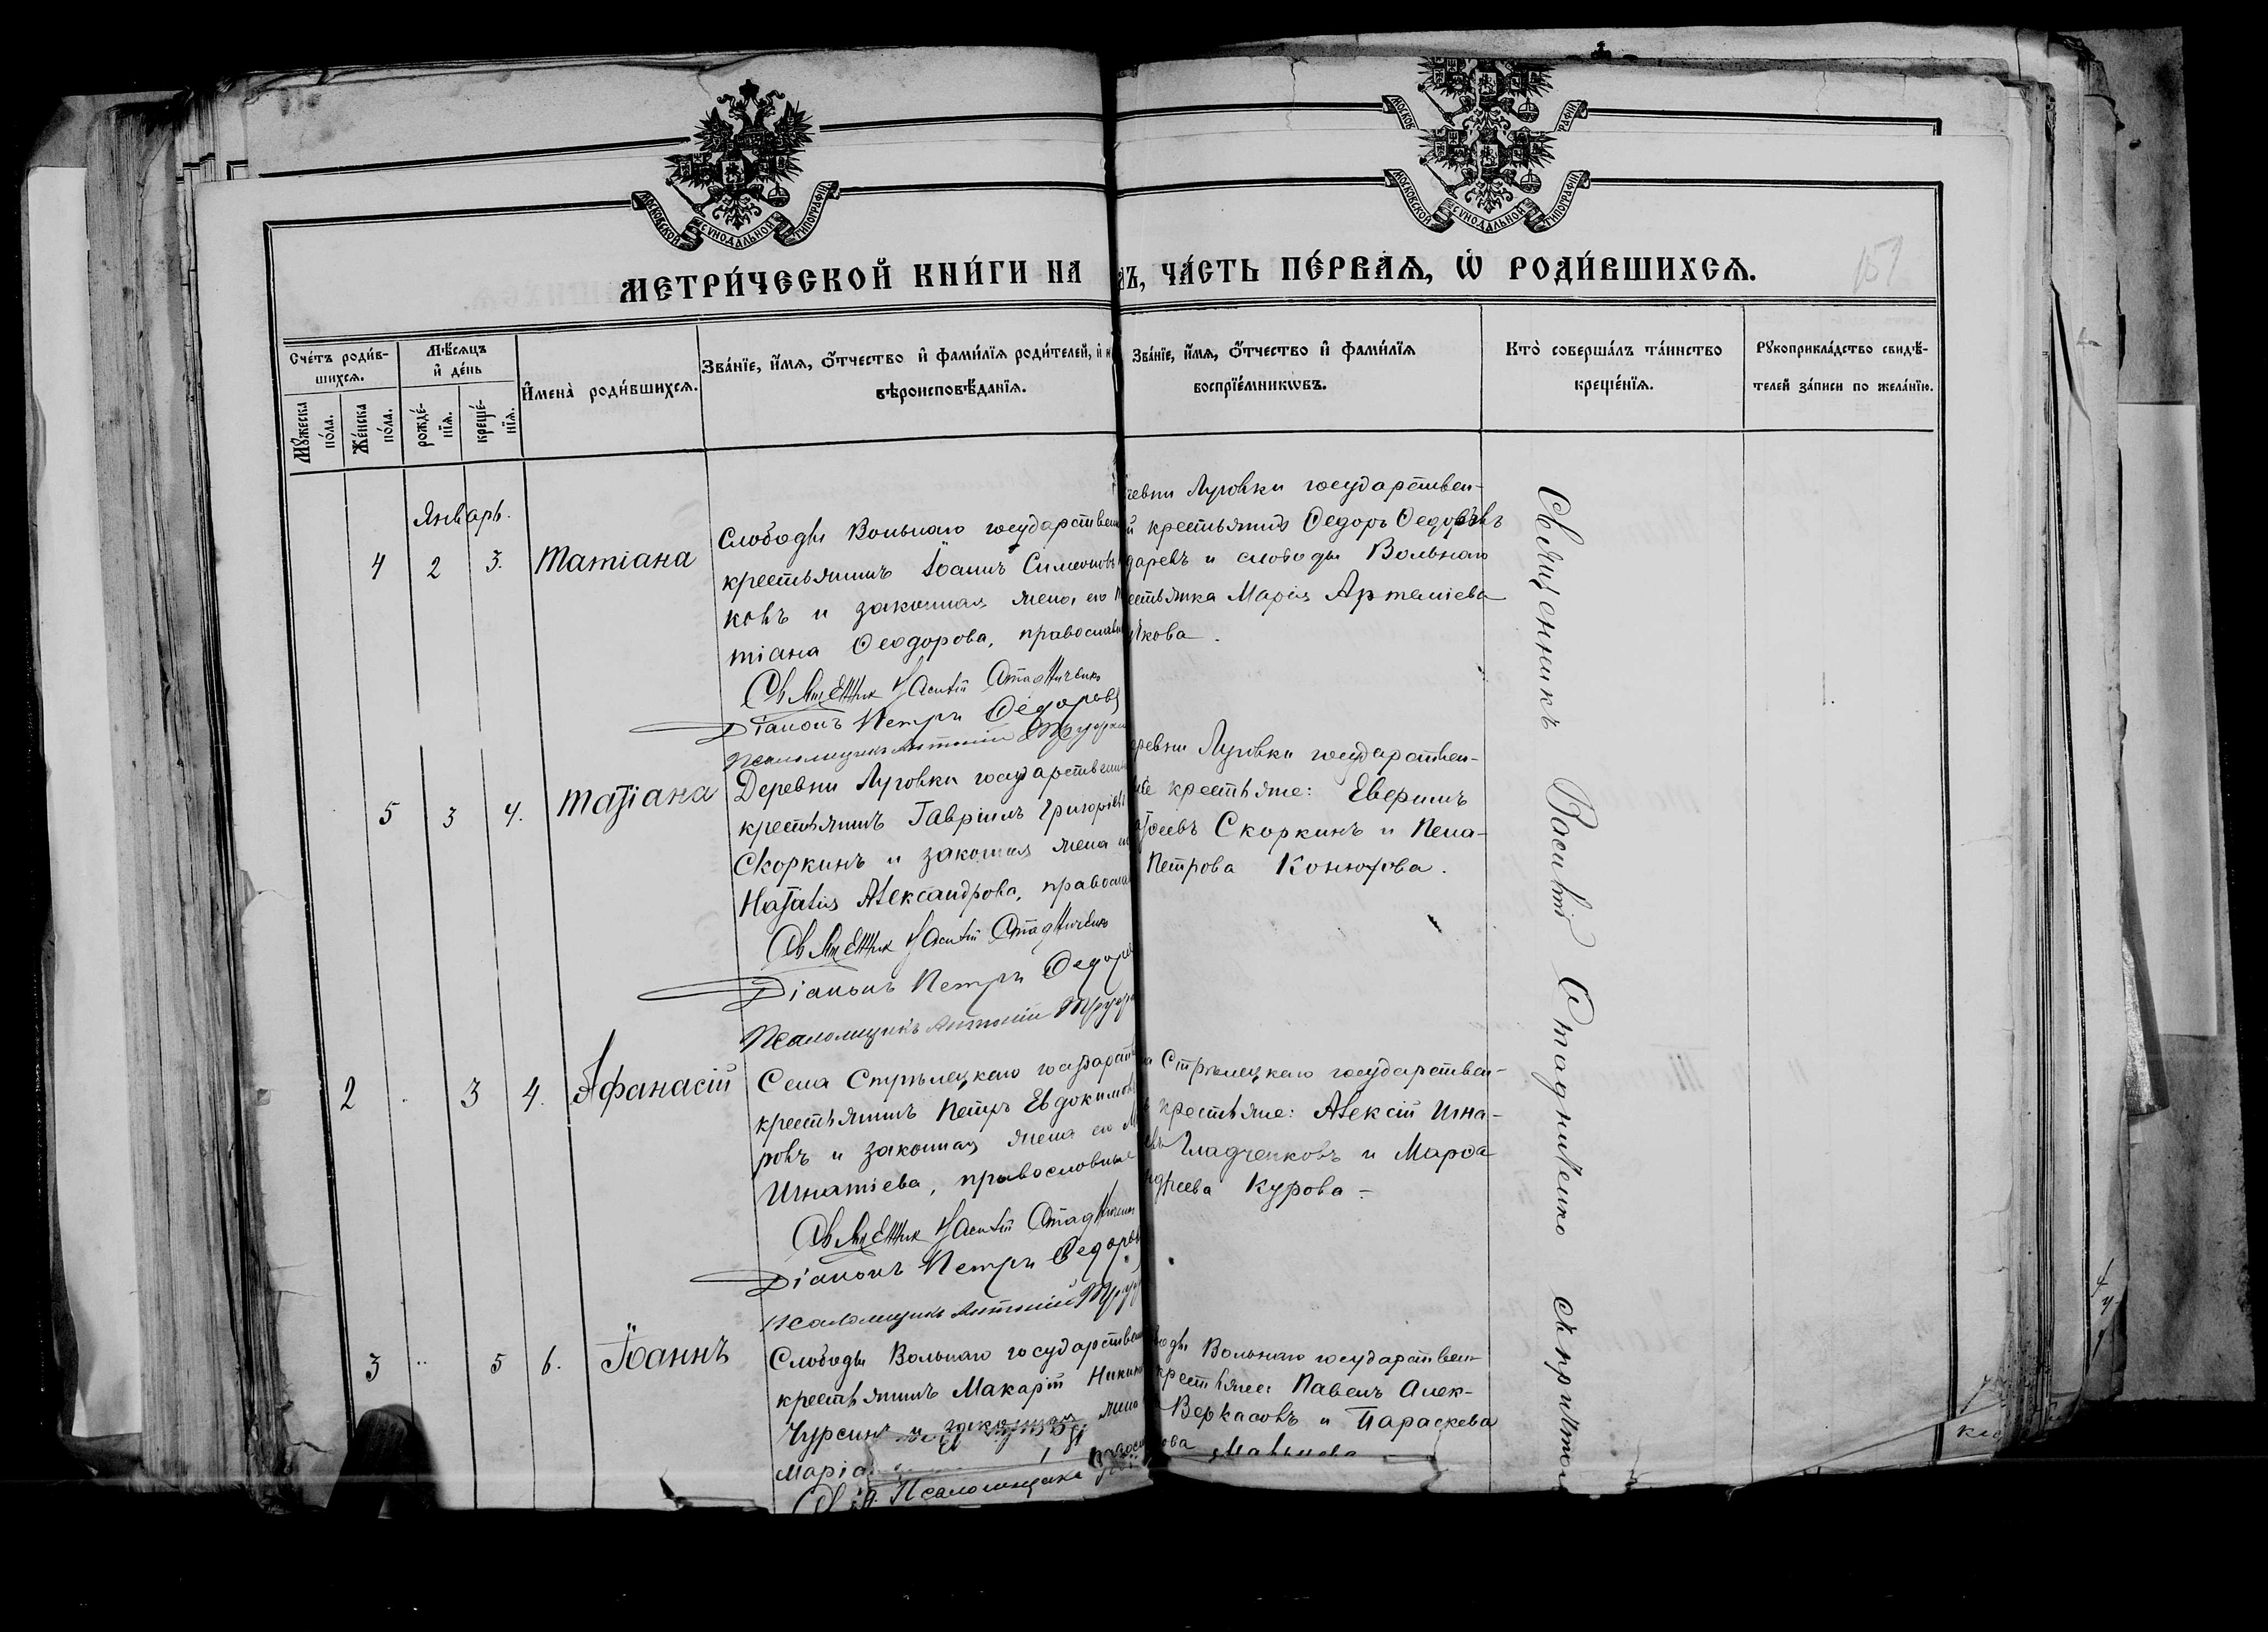 МОСКОВСКОЙ СѴНОДАЛЬНОЙ ТИПОГРАФІИ
МОСКОВСКОЙ СѴНОДАЛЬНОЙ ТИПОГРАФІИ
МЕТРИ́ЧЕСКОЙ КНИ́ГИ НА
ЧА́СТЬ ПЕ́РВАѦ, Ѡ҆ РОДИ́ВШИХСѦ.
Сче́тъ роди́в-
шихсѧ.
Мѣ́сѧцъ
и҆ де́нь
И҆мена̀ роди́вшихсѧ.
Зва́нїе, и҆́мѧ, ѻ҆́тчество и҆ фами́лїѧ роди́телей, и҆
вѣроисповѣ́данїѧ.
Мꙋ́жеска
по́ла.
Же́нска
по́ла.
рожде́-
нїѧ.
креще́-
нїѧ.
Зва́нїе, и҆́мѧ, ѻ҆́тчество и҆ фами́лїѧ
воспрїе́мникѡвъ.
Кто̀ соверша́лъ та́инство
креще́нїѧ.
Рꙋкоприкла́дство свидѣ́-
телей за́писи по жела́нїю.
Январь.
4 2 3. Татіана
Слободы Вольнаго государствен
крестьянинъ Іоаннъ Симеоновъ
ковъ и законная жена его
тіана Ѳеодорова, православн
Священник Василій Стадниченко
Діаконъ Петръ Ѳедоровъ
Псаломщикъ Антоній
ревни Луговки государствен-
й крестьянинъ Ѳедоръ Ѳедоровъ
даревъ и слободы Вольнаго
естьянка Марія Артеміева
кова.
5 3 4. Татіана
Деревни Луговки государственн
крестьянинъ Гавріилъ Григоріев
Скоркинъ и законная жена
Наталія Александрова, правосла
Священник Василій Стадниченко
Діаконъ Петръ Ѳедоров
Псаломщикъ Антоній
ревни Луговки государствен-
ые крестьяне: Евфимъ
Скоркинъ и Пела-
Петрова Конюхова.
2 3 4. Аѳанасій
Села Стрѣлецкаго государств
крестьянинъ Петръ Евдокимов
ровъ и законная жена его
Игнатіева, православные
Священник Василій Стадниченко
Діаконъ Петръ Ѳедоров
Псаломщикъ Антоній
Стрѣлецкаго государствен-
крестьяне: Алексій Игна-
Гладченковъ и Марѳа
ндреева Курова.
3 5 6. Іоаннъ
Слободы Вольнаго государствен
крестьянинъ Макарій
Чурсинъ и законная жена
Марія
Псаломщика
Вольнаго государствен-
крестьяне: Павелъ Алек-
Веркасовъ и Параскева
ова
Священникъ Василій Стадниченко